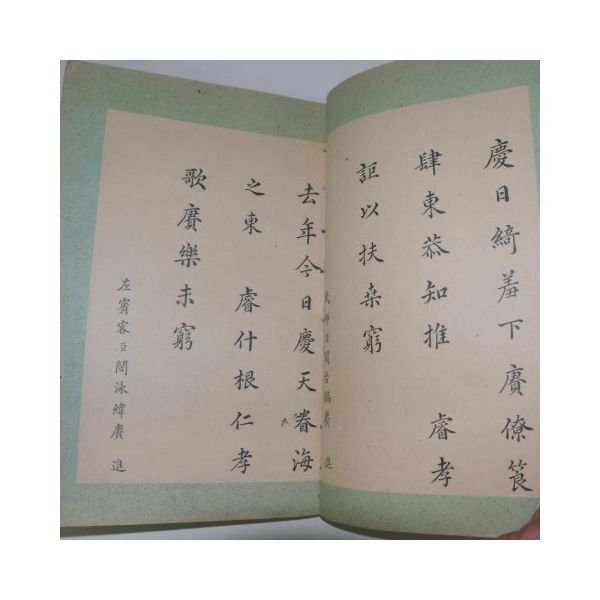 慶日綺羞下賓僚筵
肆東恭知推 睿孝
詎以扶桒窮
師臣閔台鎬賡 進
去年今日慶天眷海
之東 睿什根仁孝
歌賡樂未窮
左賓客臣閔泳緯賡 進